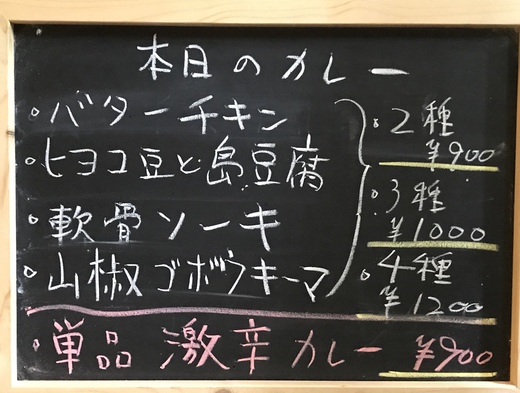 本日のカレー
・バターチキン
・ヒヨコ豆と島豆腐
・軟骨ソーキ
・山椒ゴボウキーマ
・2種
¥900
・3種
¥1000
・4種
¥1200
・単品 激辛カレー ¥900